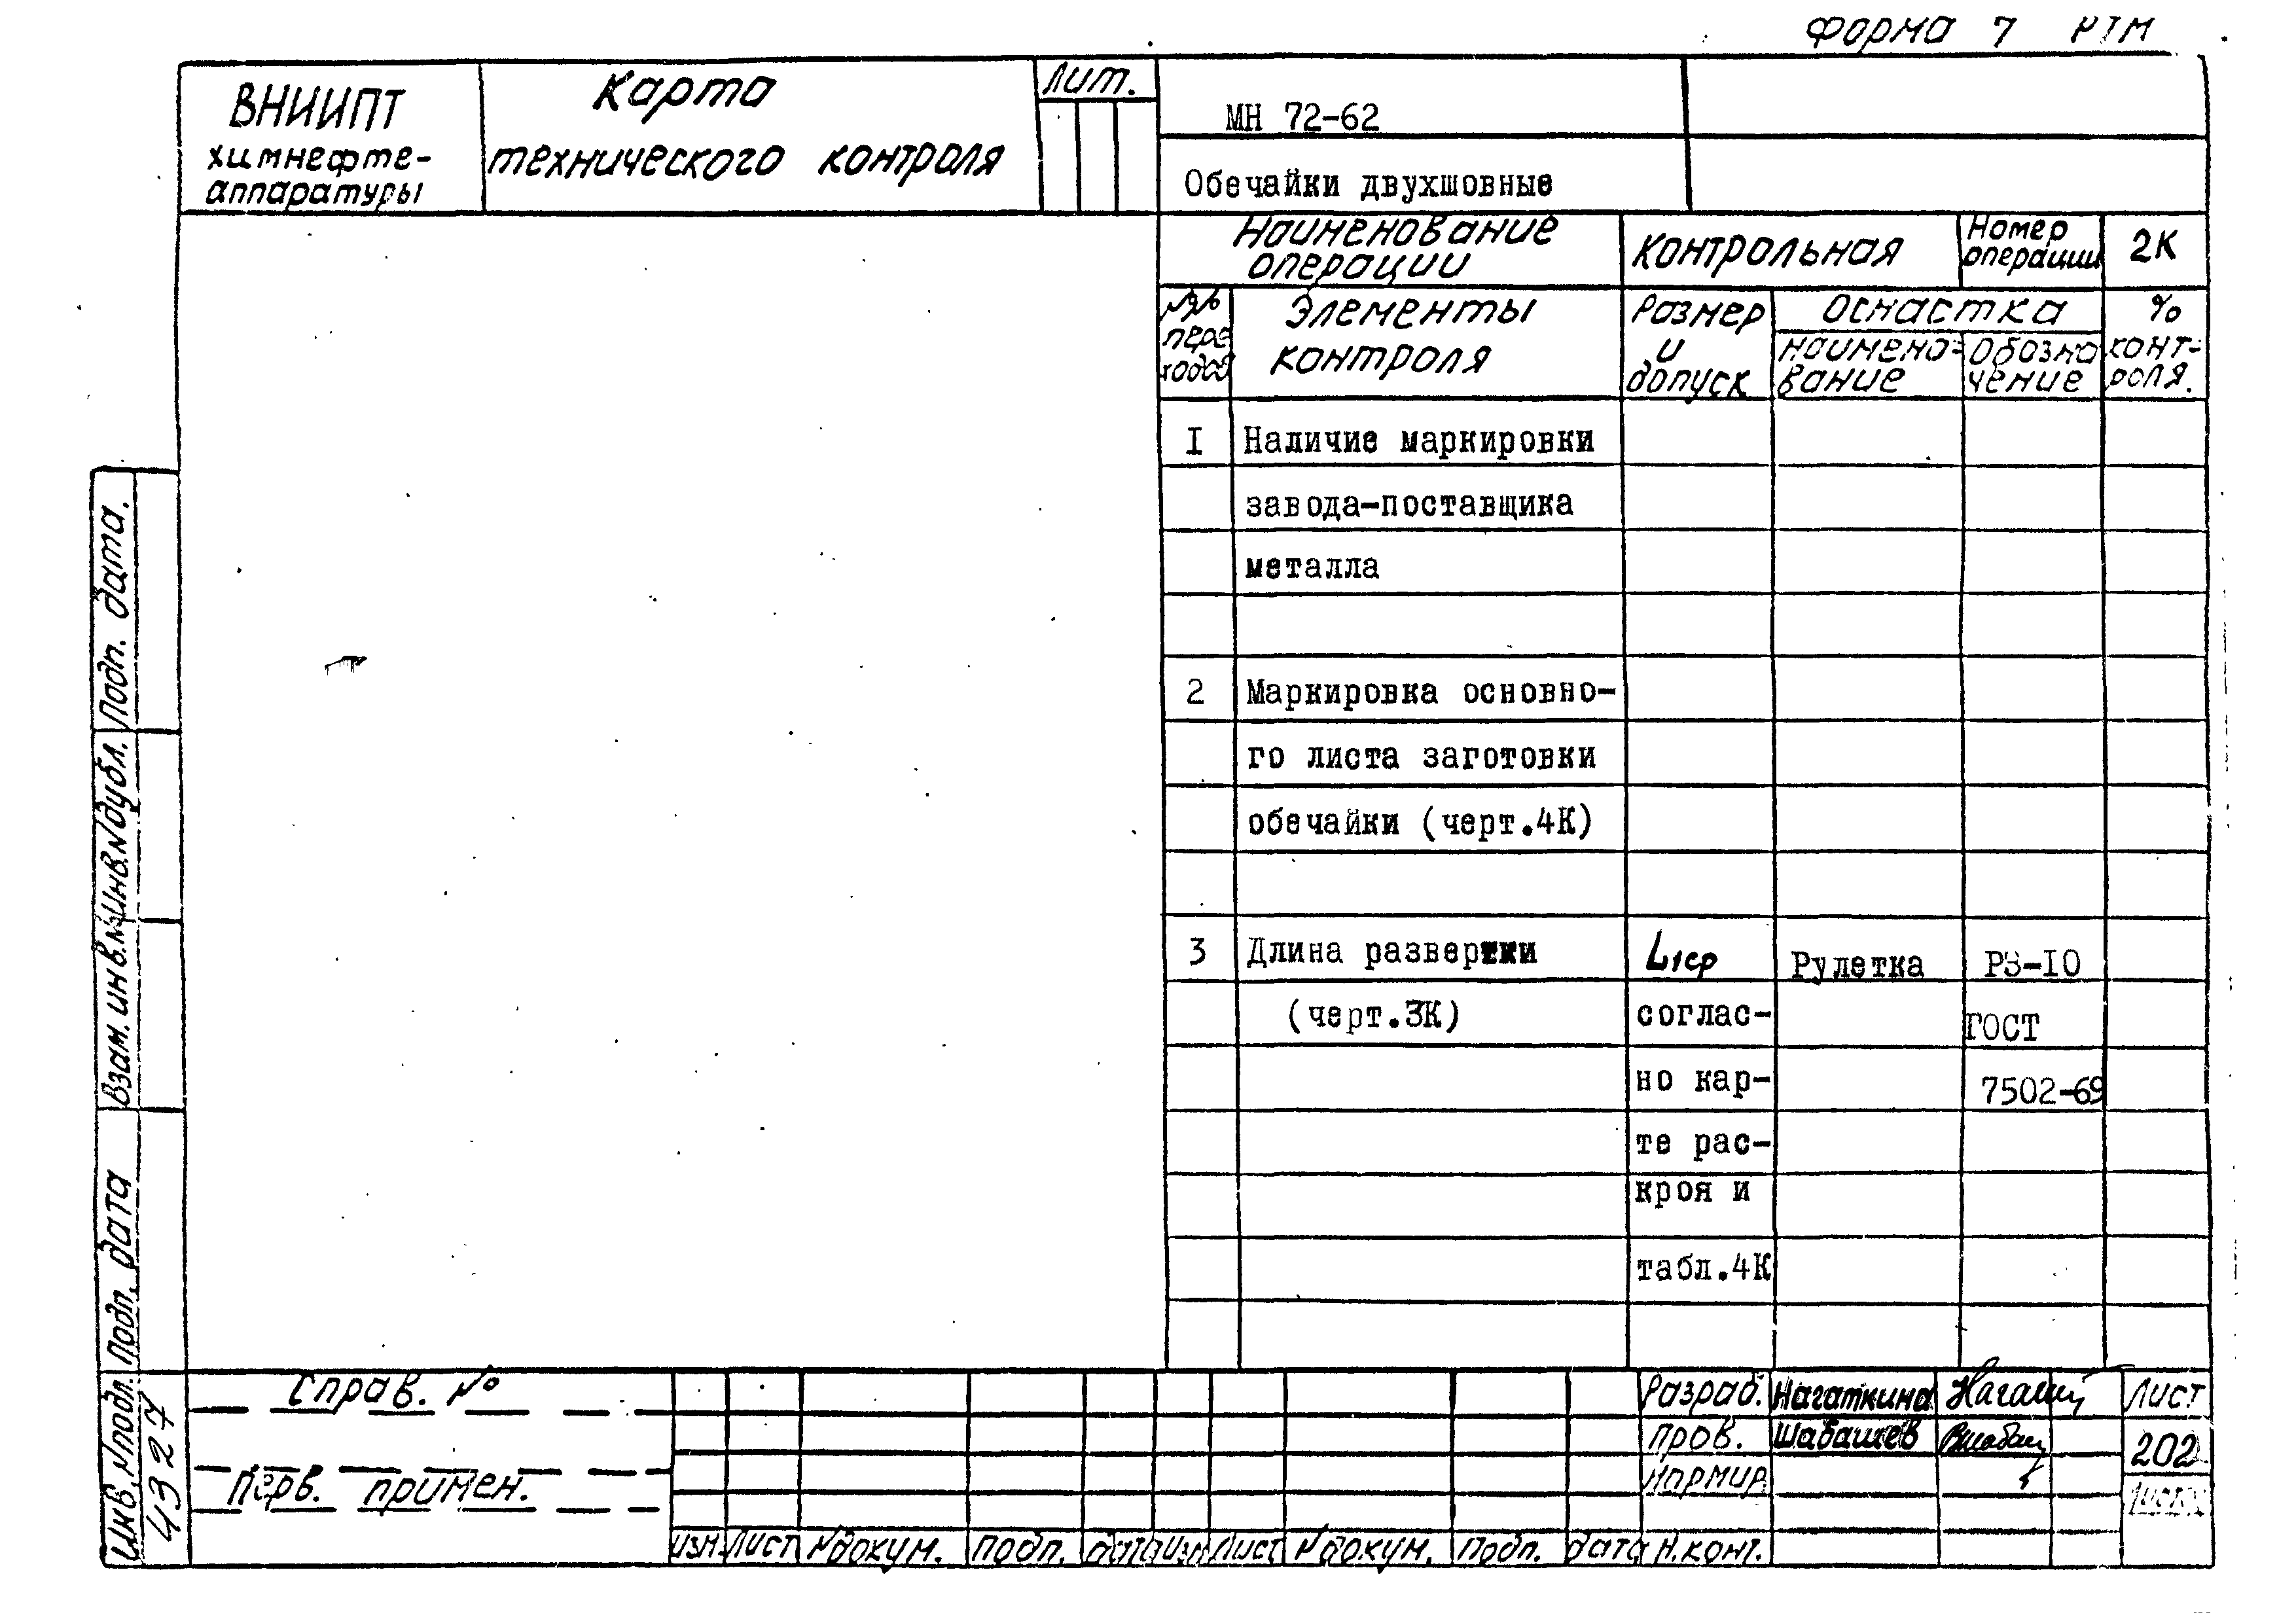 Форма 7 РТМ
ВНИИПТ
химнефте-
аппаратуры
Карта
технического контроля
Лит.
МН 72-62
Обечайки двухшовные
Наименование
операции
контрольная
Номер
операции
2К
№№
пере
ходов
Элементы
контроля
Размер
и
допуск
Оснастка
наимено-
вание
Обозна
чение
%
конт-
роля.
I
Наличие маркировки
завода-поставщика
металла
2
Маркировка основно-
го листа заготовки
обечайки (черт.4К)
3
Длина развертки
(черт.3К)
L1ср
соглас-
но кар-
те рас-
кроя и
табл.4К
Рулетка
РЗ-IO
ГОСТ
7502-69
Подп. дата.
Инв.№дубл.
Взам. инв.№
Подп. дата
Инв.№подл.
4327
Справ. №
Перв. примен.
изм.
Лист
№докум.
подп.
дата
изм
Лист
№докум.
подп.
дата
Разраб.
Нагаткина
Пров.
Шабашев
Нормир
Н.конт.
Лист
202